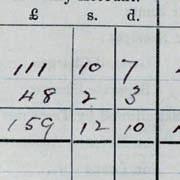 Account.
£ s. d.
111 10 7
48 2 3
159 12 10